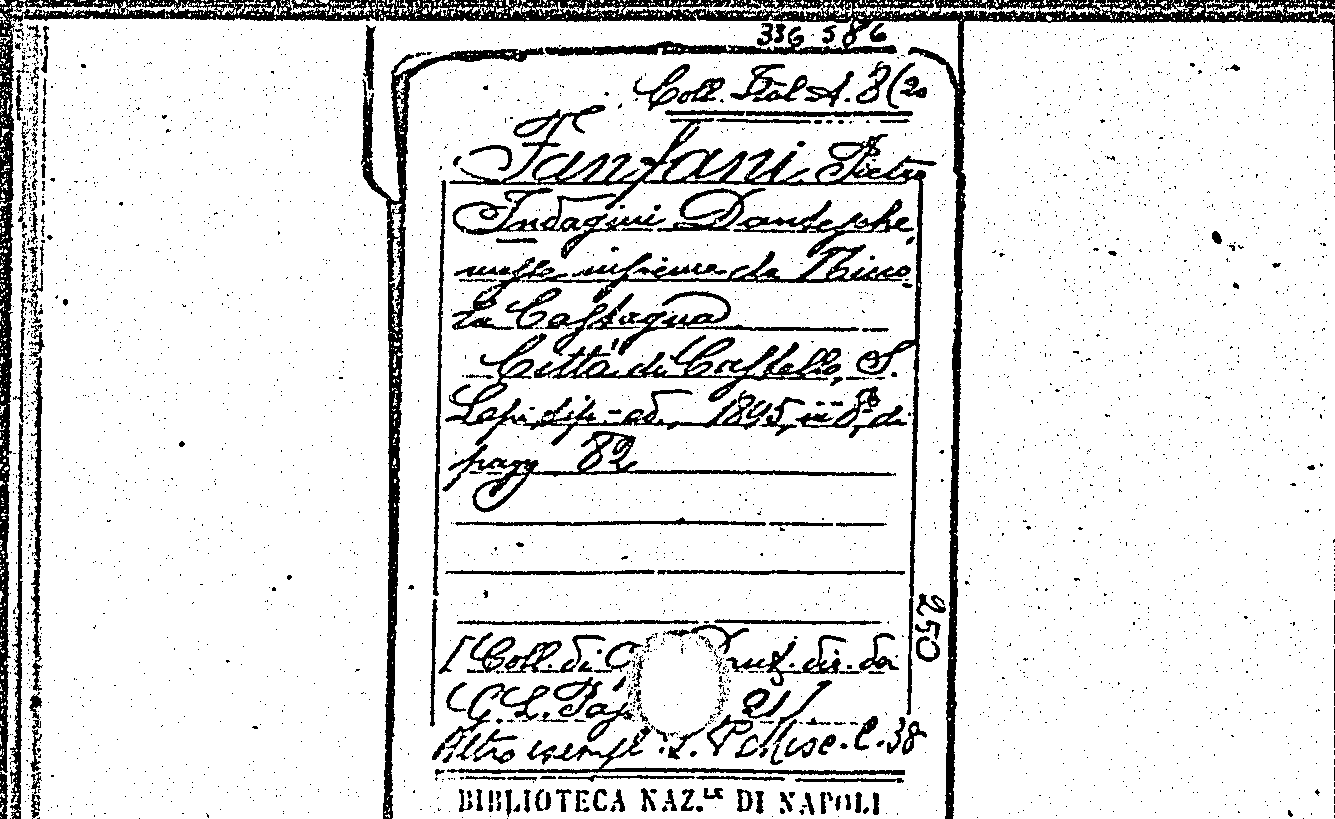 336586
Coll. Ital. A. 8(20
Fanfani Pietro
Indagini Dantesche
messe insieme da Mico
La Castagna
Città di Castello, S.
Lapi, tip.-ed., 1895, in 8°, di
pagg. 82
250
[Coll. di Dant. dir. da
G. L. 21]
Altro esempl. Misc. C. 38
BIBLIOTECA NAZ.LE DI NAPOLI